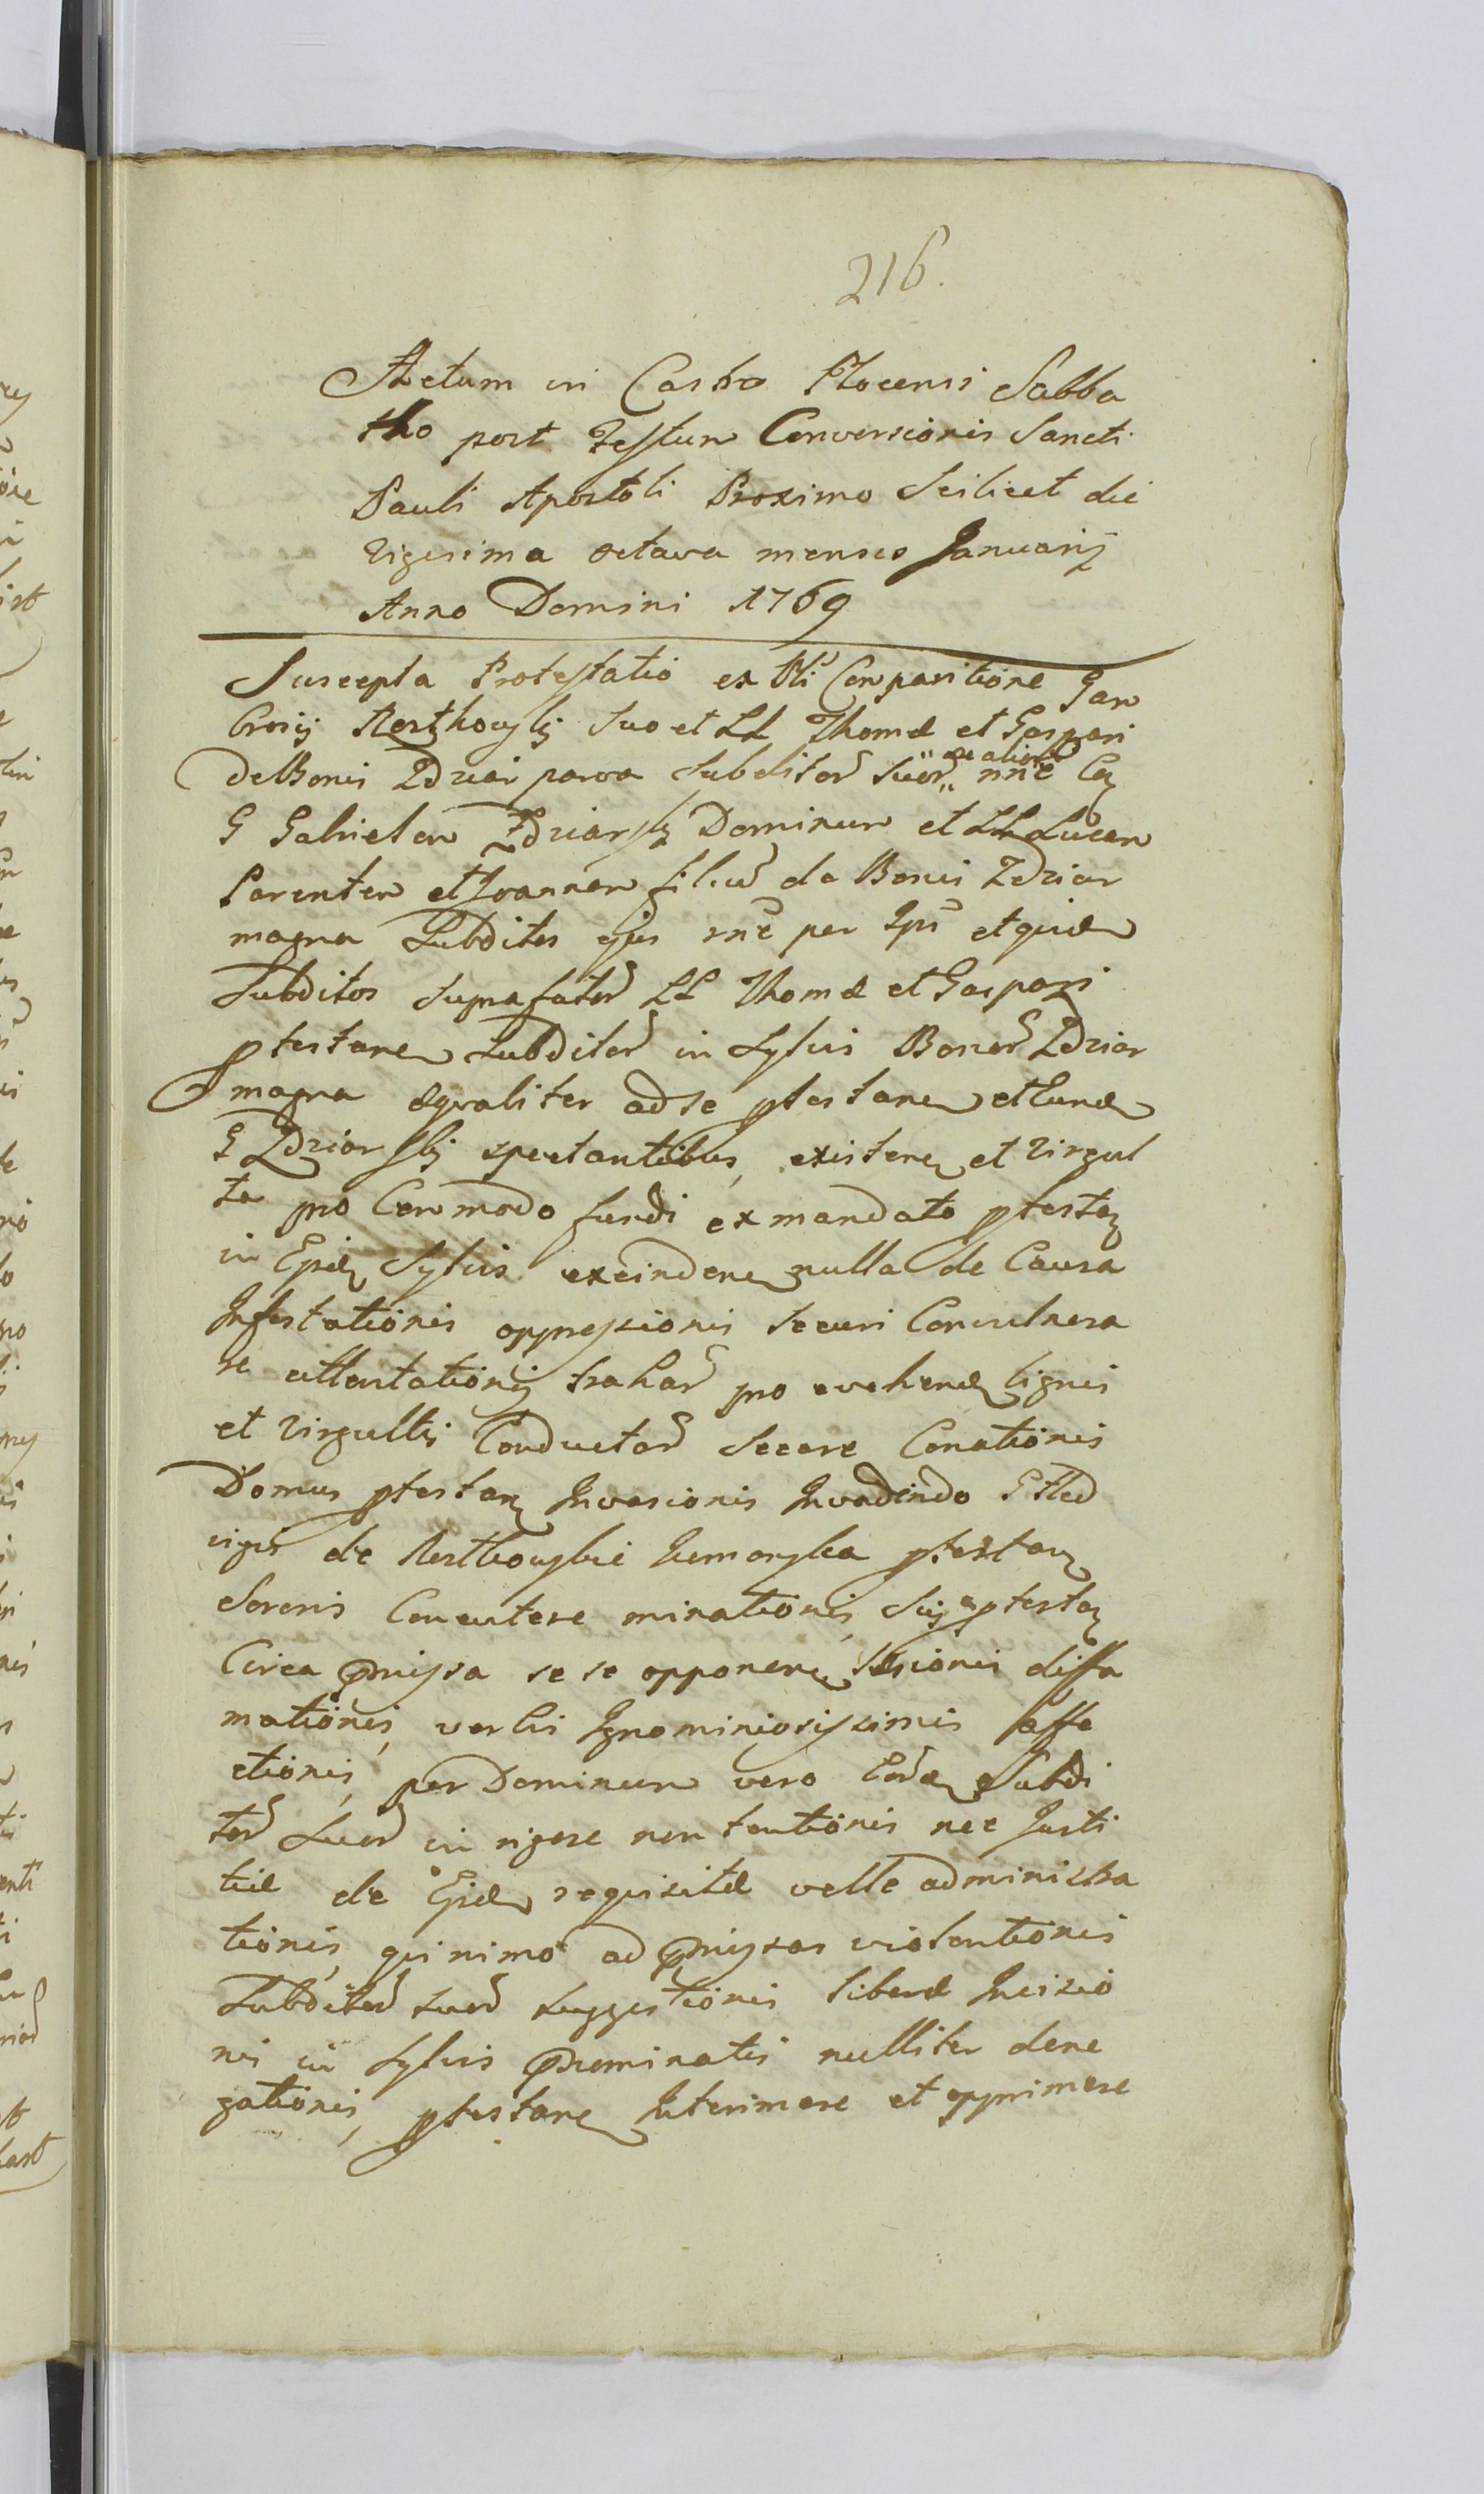 216.
Actum in Castro Plocensi Sabba
tho post Festum Conversionis Sancti
Pauli Apostoli Proximo Scilicet die
Vigesima octava mensis Januarij
Anno Domini 1769
Suscepta Protestatio ex Comparitione
suo et LL Thomæ et Gaspari
de Bonis Zdziar parva Subditor suor nne
G Gabrielem Dominum et LL Lucam
Parentem et Joannem filiu de Bonis Zdziar
magna Subditos ejus nne per Ips et
Subditos suprafator LL Thomæ et Gaspari
ptestane Subditor in Sylvis Bonor Zdziar
magna æqualiter ad se ptestane et
G spectantibus, existere et Virgul
ta pro Commodo fundi ex mandato ptestan
in Sylvis excindere nulla de Causa
Infestationis oppressionis securi Convulnera
re attentationis pro evehend lignis
et Virgultis Conductor Secare Conationis
Domus ptestan Invasionis Invadendo
de ptestan
Sororis Concutere minationis, ptestan
Circa pmissa se se opponere Læsionis diffa
mationis, verbis Ignominiosissimis affe
ctionis, per Dominum vero Subdi
tor suor in rigore non tentionis nec Justi
tiæ de requisitæ velle administra
tionis, quinimo ad pmissas violentionis
Subditor suor suggestionis liberæ Incisio
nis in Sylvis pnominatis nulliter dene
gationis, ptestane Interimere et opprimere